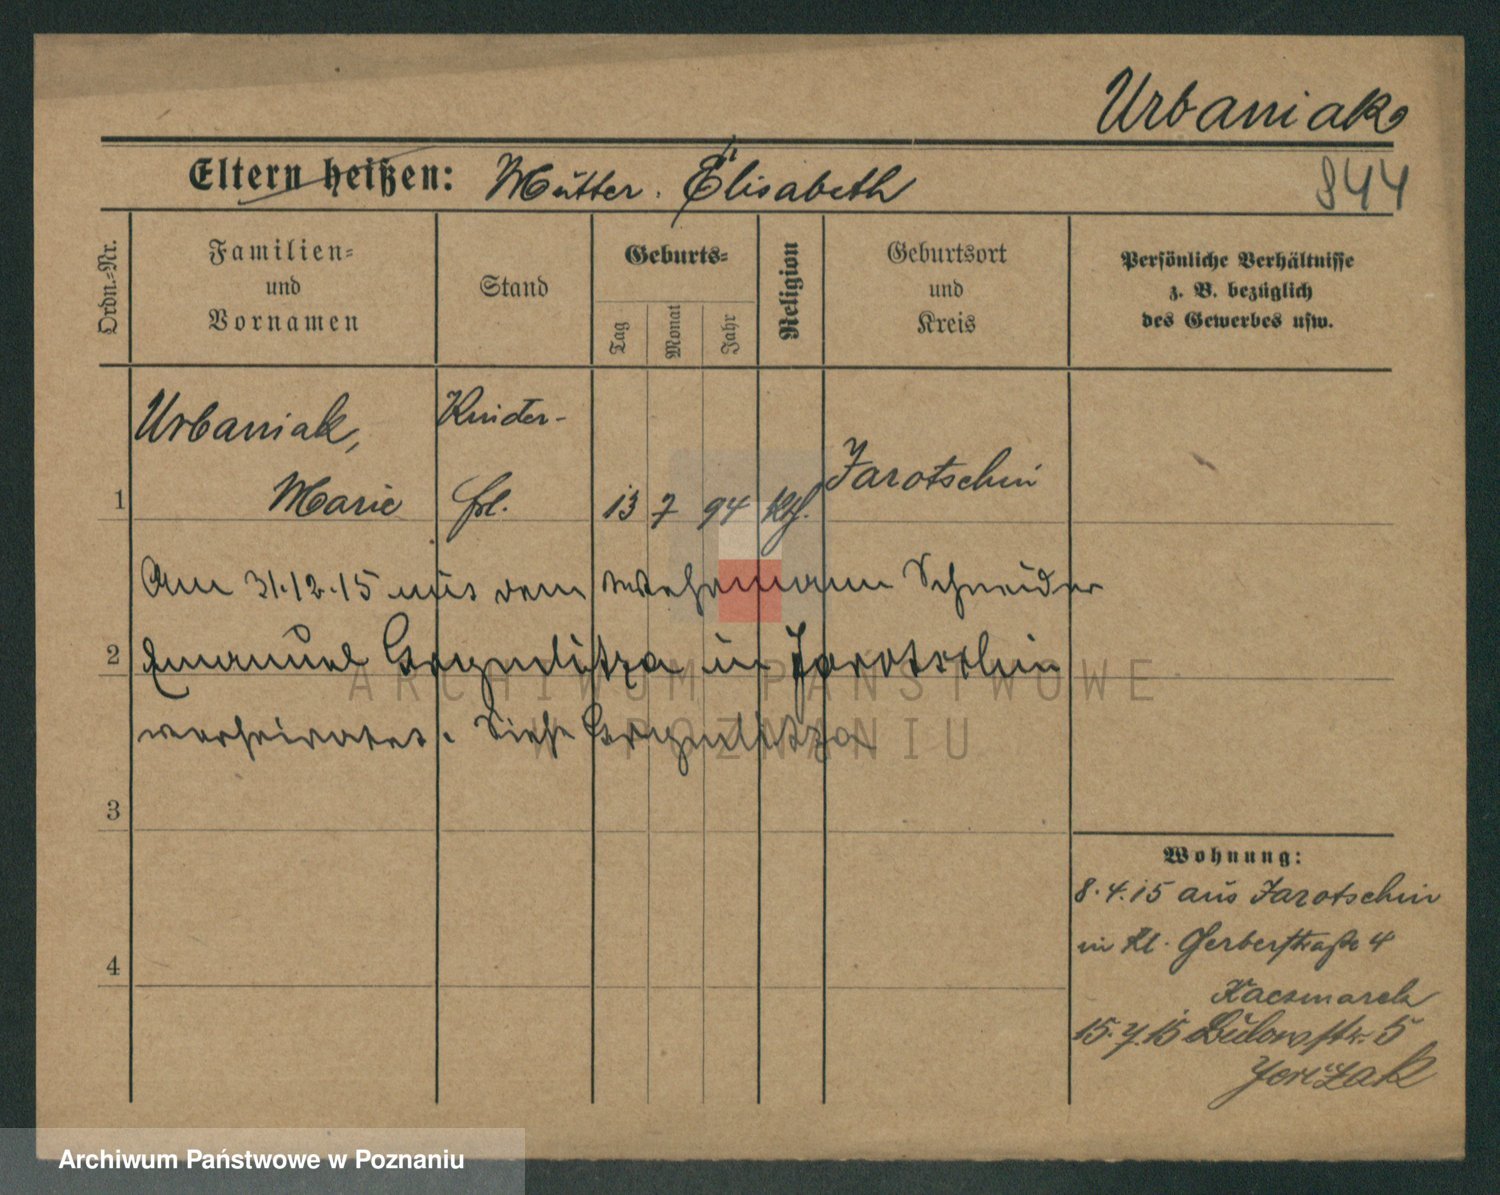 Urbaniak
844
Eltern heißen: Mutter. Elisabeth
Ordn.-Nr.
Familien- und Vornamen
Stand
Geburts-
Tag
Monat
Jahr
Religion
Geburtsort und Kreis
Persönliche Verhältnisse
z. B. bezüglich
des Gewerbes usw.
Urbaniak, Kinder-
1 Marie frl. 13 7 94 kth. Jarotschin
Am 31.12.15 mit dem Wehrmann Schneider
2 Emanuel in Jarotschin
verheiratet. Siehe
3
4
Wohnung:
8.4.15 aus Jarotschin
in Kl. Gerberstraße 4
Kaczmarek
15.7.15 Bülowstr. 5
ARCHIWUM PAŃSTWOWE
W POZNANIU
Archiwum Państwowe w Poznaniu